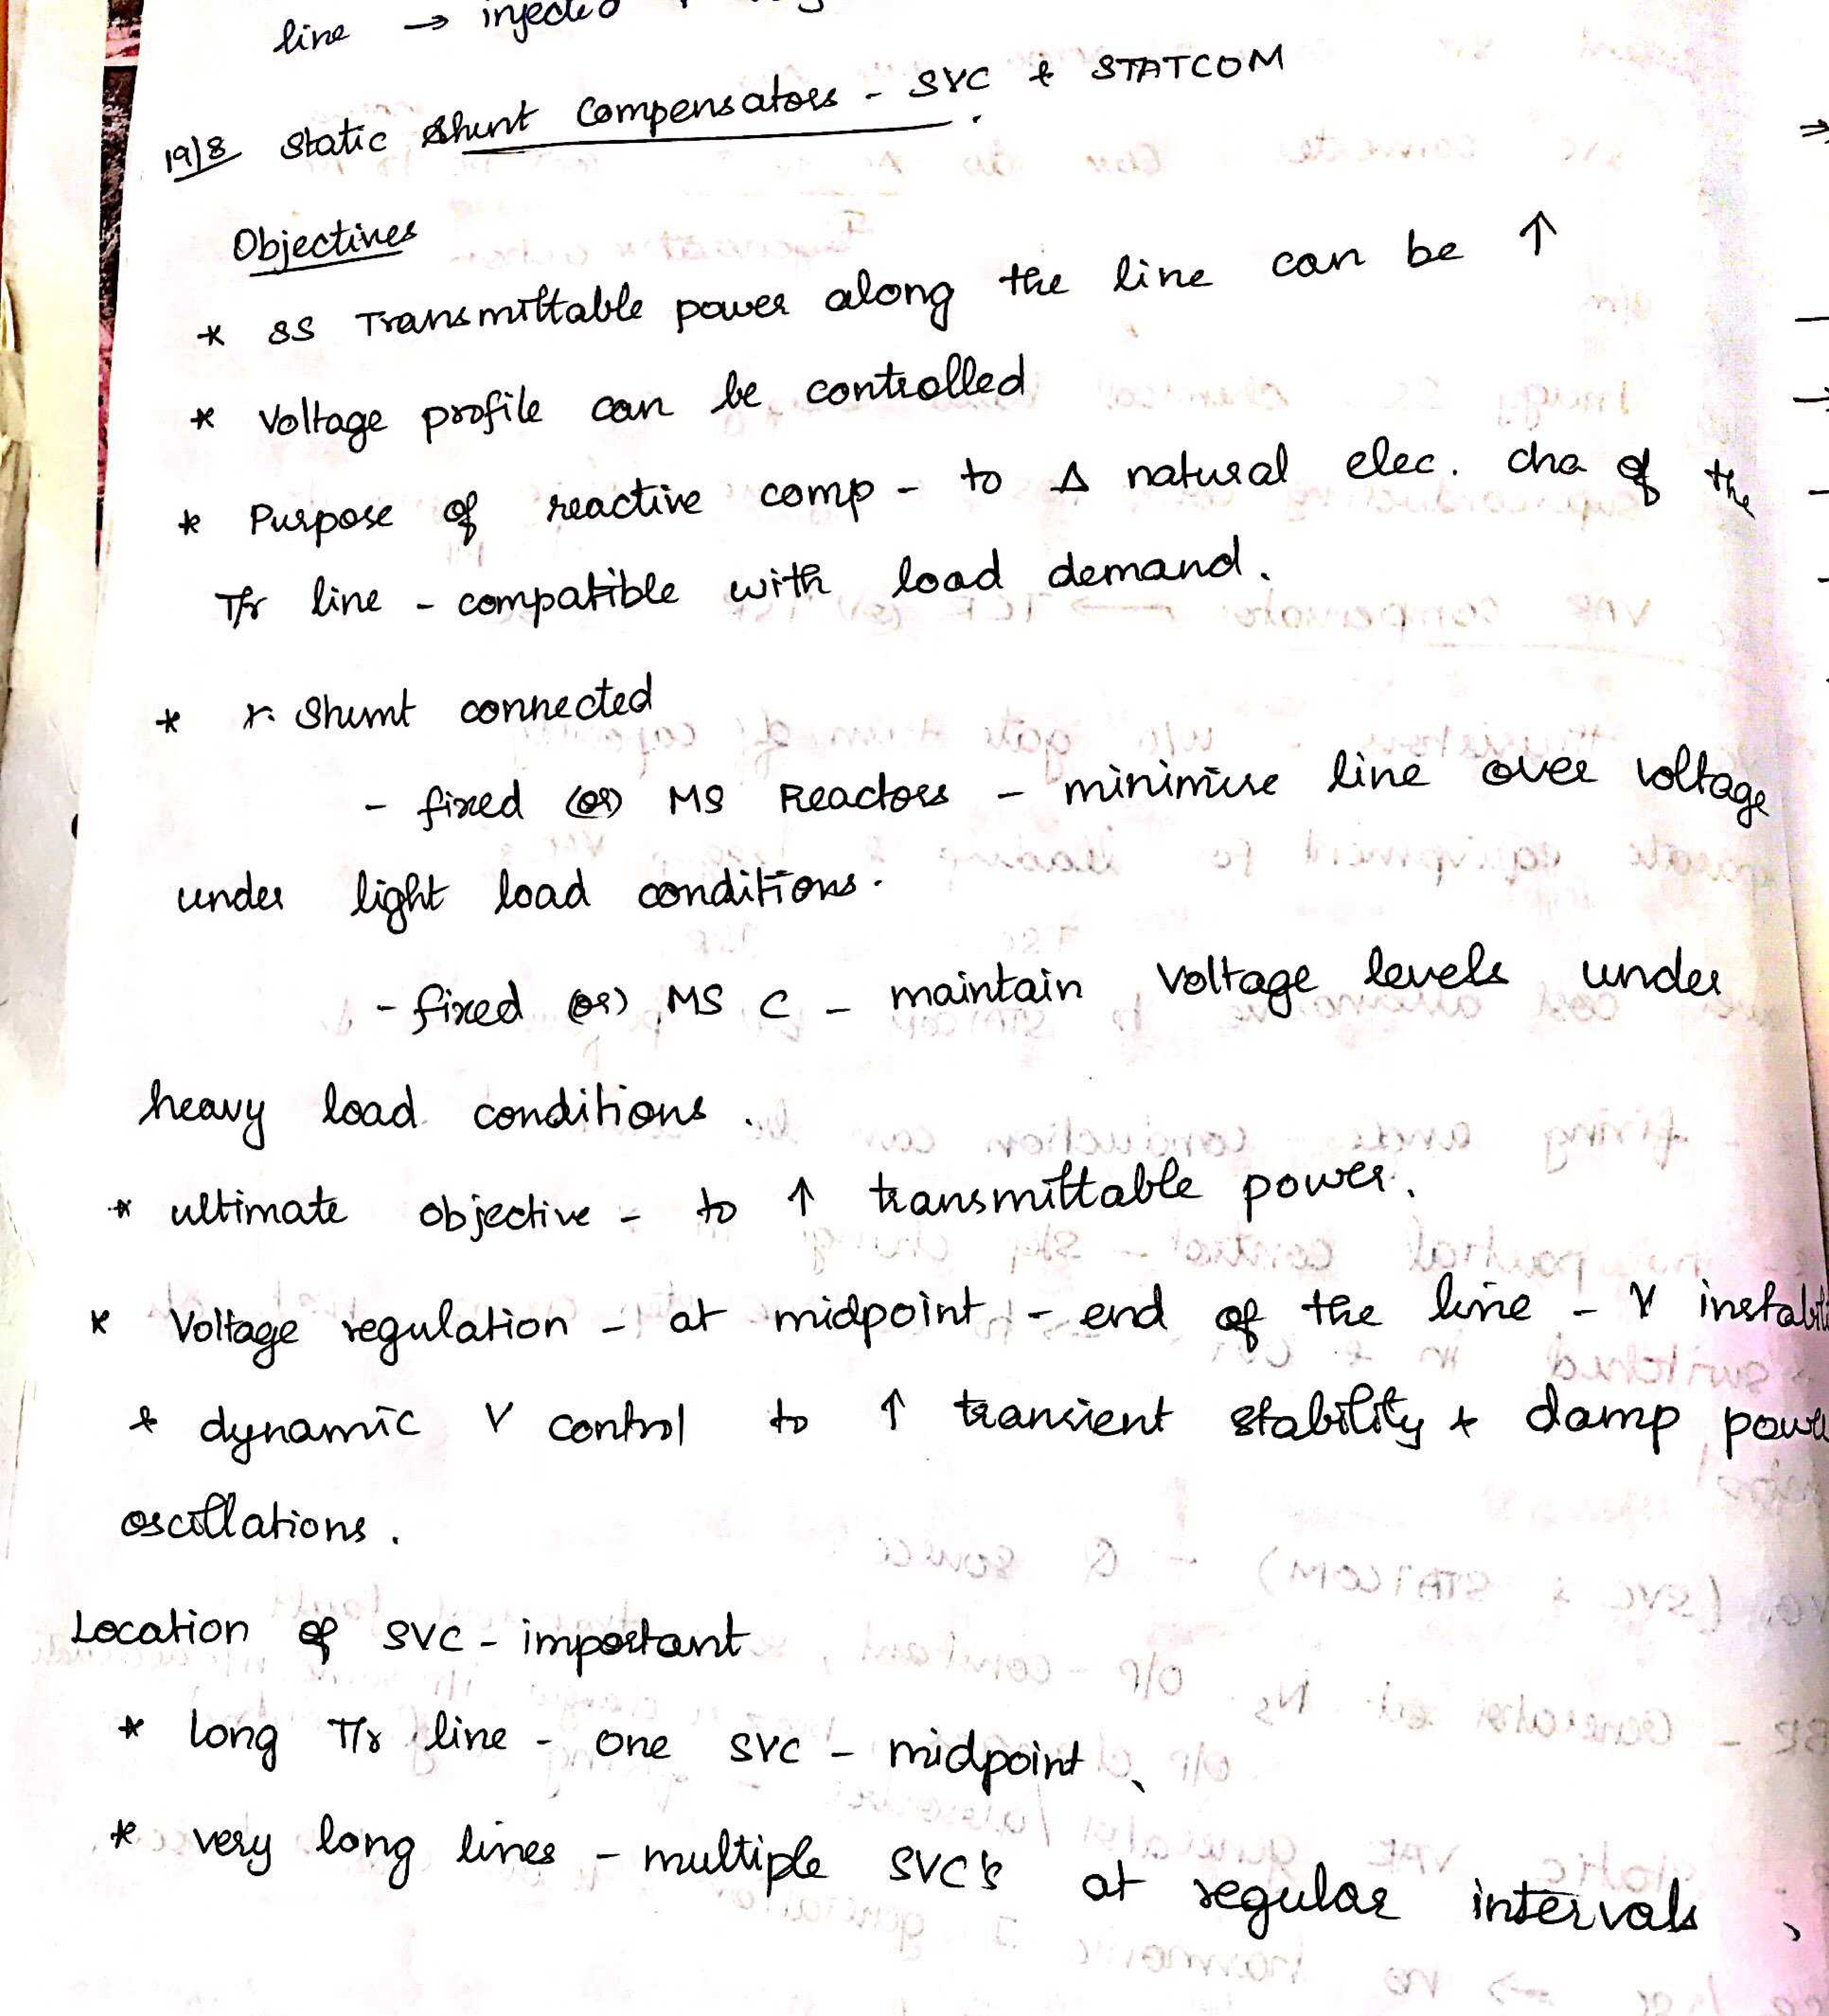 line → injected
19/8 Static Shunt Compensators - SVC & STATCOM
Objectives
* SS Transmittable power along the line can be ↑
* Voltage profile can be controlled
* Purpose of reactive comp - to Δ natural elec. cha of the
T/r line - compatible with load demand.
* Shunt connected
- fixed (or) MS Reactors - minimise line over voltage
under light load conditions.
- fixed (or) MS C - maintain voltage levels under
heavy load conditions.
* ultimate objective - to ↑ transmittable power.
* Voltage regulation - at midpoint - end of the line - V
& dynamic V control to ↑ transient stability & damp
oscillations.
Location of SVC - important
* long T/r line - one SVC - midpoint
* very long lines - multiple SVC's at regular intervals